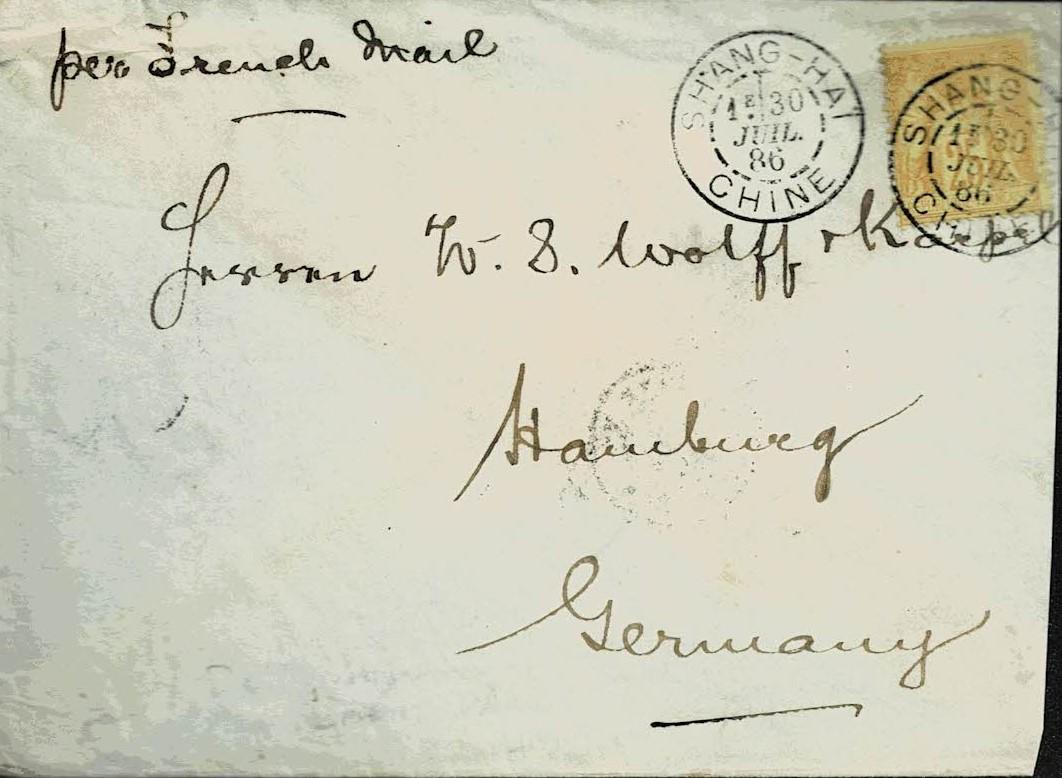 per French Mail
SHANG-HAI
1E 30
JUIL.
86
CHINE
SHANG-
1E 30
JUIL.
86
CHINE
Herren W. S. Wolff & Kaepel
Hamburg
Germany